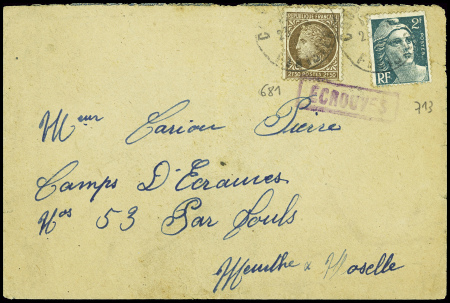 REPUBLIQUE FRANÇAISE
2F50 POSTES 2F50
2F
POSTES
RF
681
ECROUVES
713
Meur Carion Pierre
Camps D'Ecrauves
Nos 53 Par Touls
Meurthe & Moselle